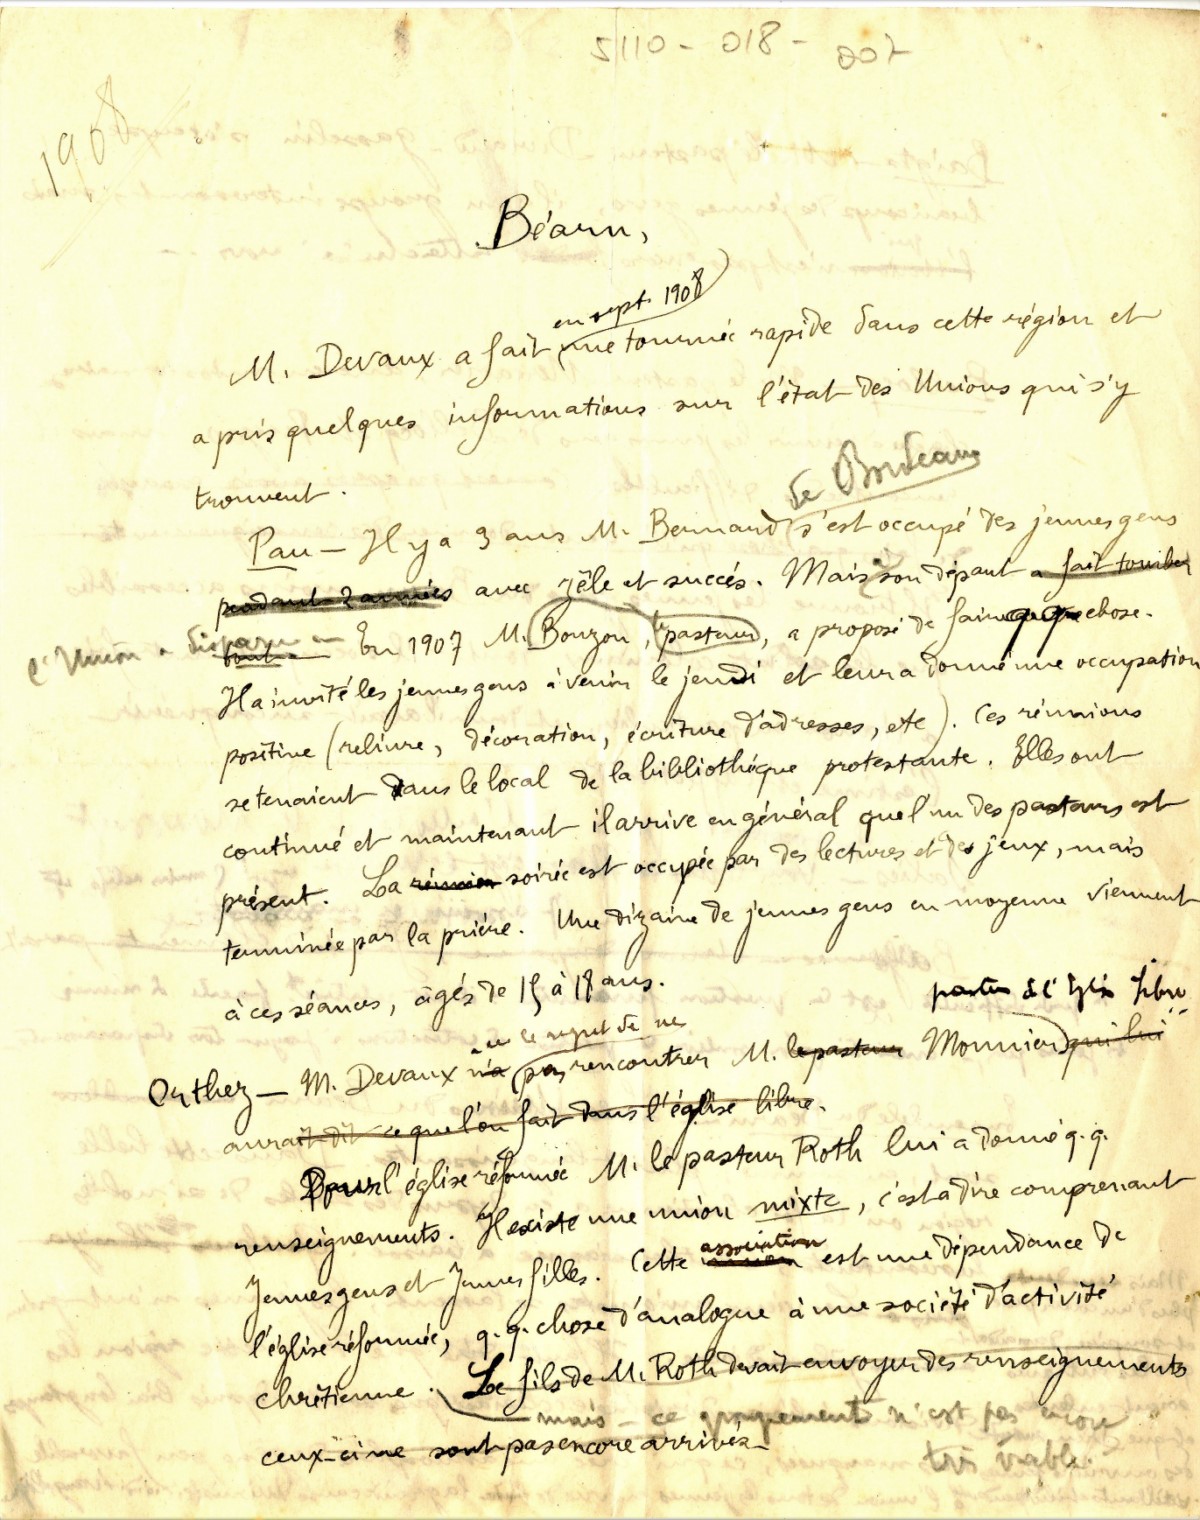 5110 - 018 - 002
1908
Béarn,
en sept. 1908
M. Devaux a fait une tournée rapide dans cette région et
a pris quelques informations sur l'état des Unions qui s'y
trouvent.
de Bordeaux
Pau — Il y a 3 ans M. Bernard s'est occupé des jeunes gens
pendant 2 années avec zèle et succés. Mais son départ a fait tomber
l'Union a disparu tout. En 1907 M. Bouzon, pasteur, a proposé de faire chose.
Il a invité les jeunes gens à venir le jeudi et leur a donné une occupation
positive (reliure, décoration, écriture d'adresses, etc). Ces réunions
se tenaient dans le local de la bibliothéque protestante. Elles ont
continué et maintenant il arrive en général que l'un des pasteurs est
présent. La réunion soirée est occupée par des lectures et des jeux, mais
terminée par la prière. Une dizaine de jeunes gens en moyenne viennent
à ces séances, âgés de 15 à 18 ans.
pasteur de l'Eglise libre
a eu le regret de ne
Orthez — M. Devaux n'a pas rencontrer M. le pasteur Monnier qui lui
aurait dit ce que l'on fait dans l'église libre.
Pour l'église réformée M. le pasteur Roth lui a donné q.q.
renseignements. Il existe une union mixte, c'est a dire comprenant
Jeunes gens et Jeunes filles. Cette association union est une dépendance de
l'église réformée, q.q. chose d'analogue à une société d'activité
chrétienne. Le fils de M. Roth devait envoyer des renseignements
mais ce groupement n'est pas encore
ceux-ci ne sont pas encore arrivés
très viable.